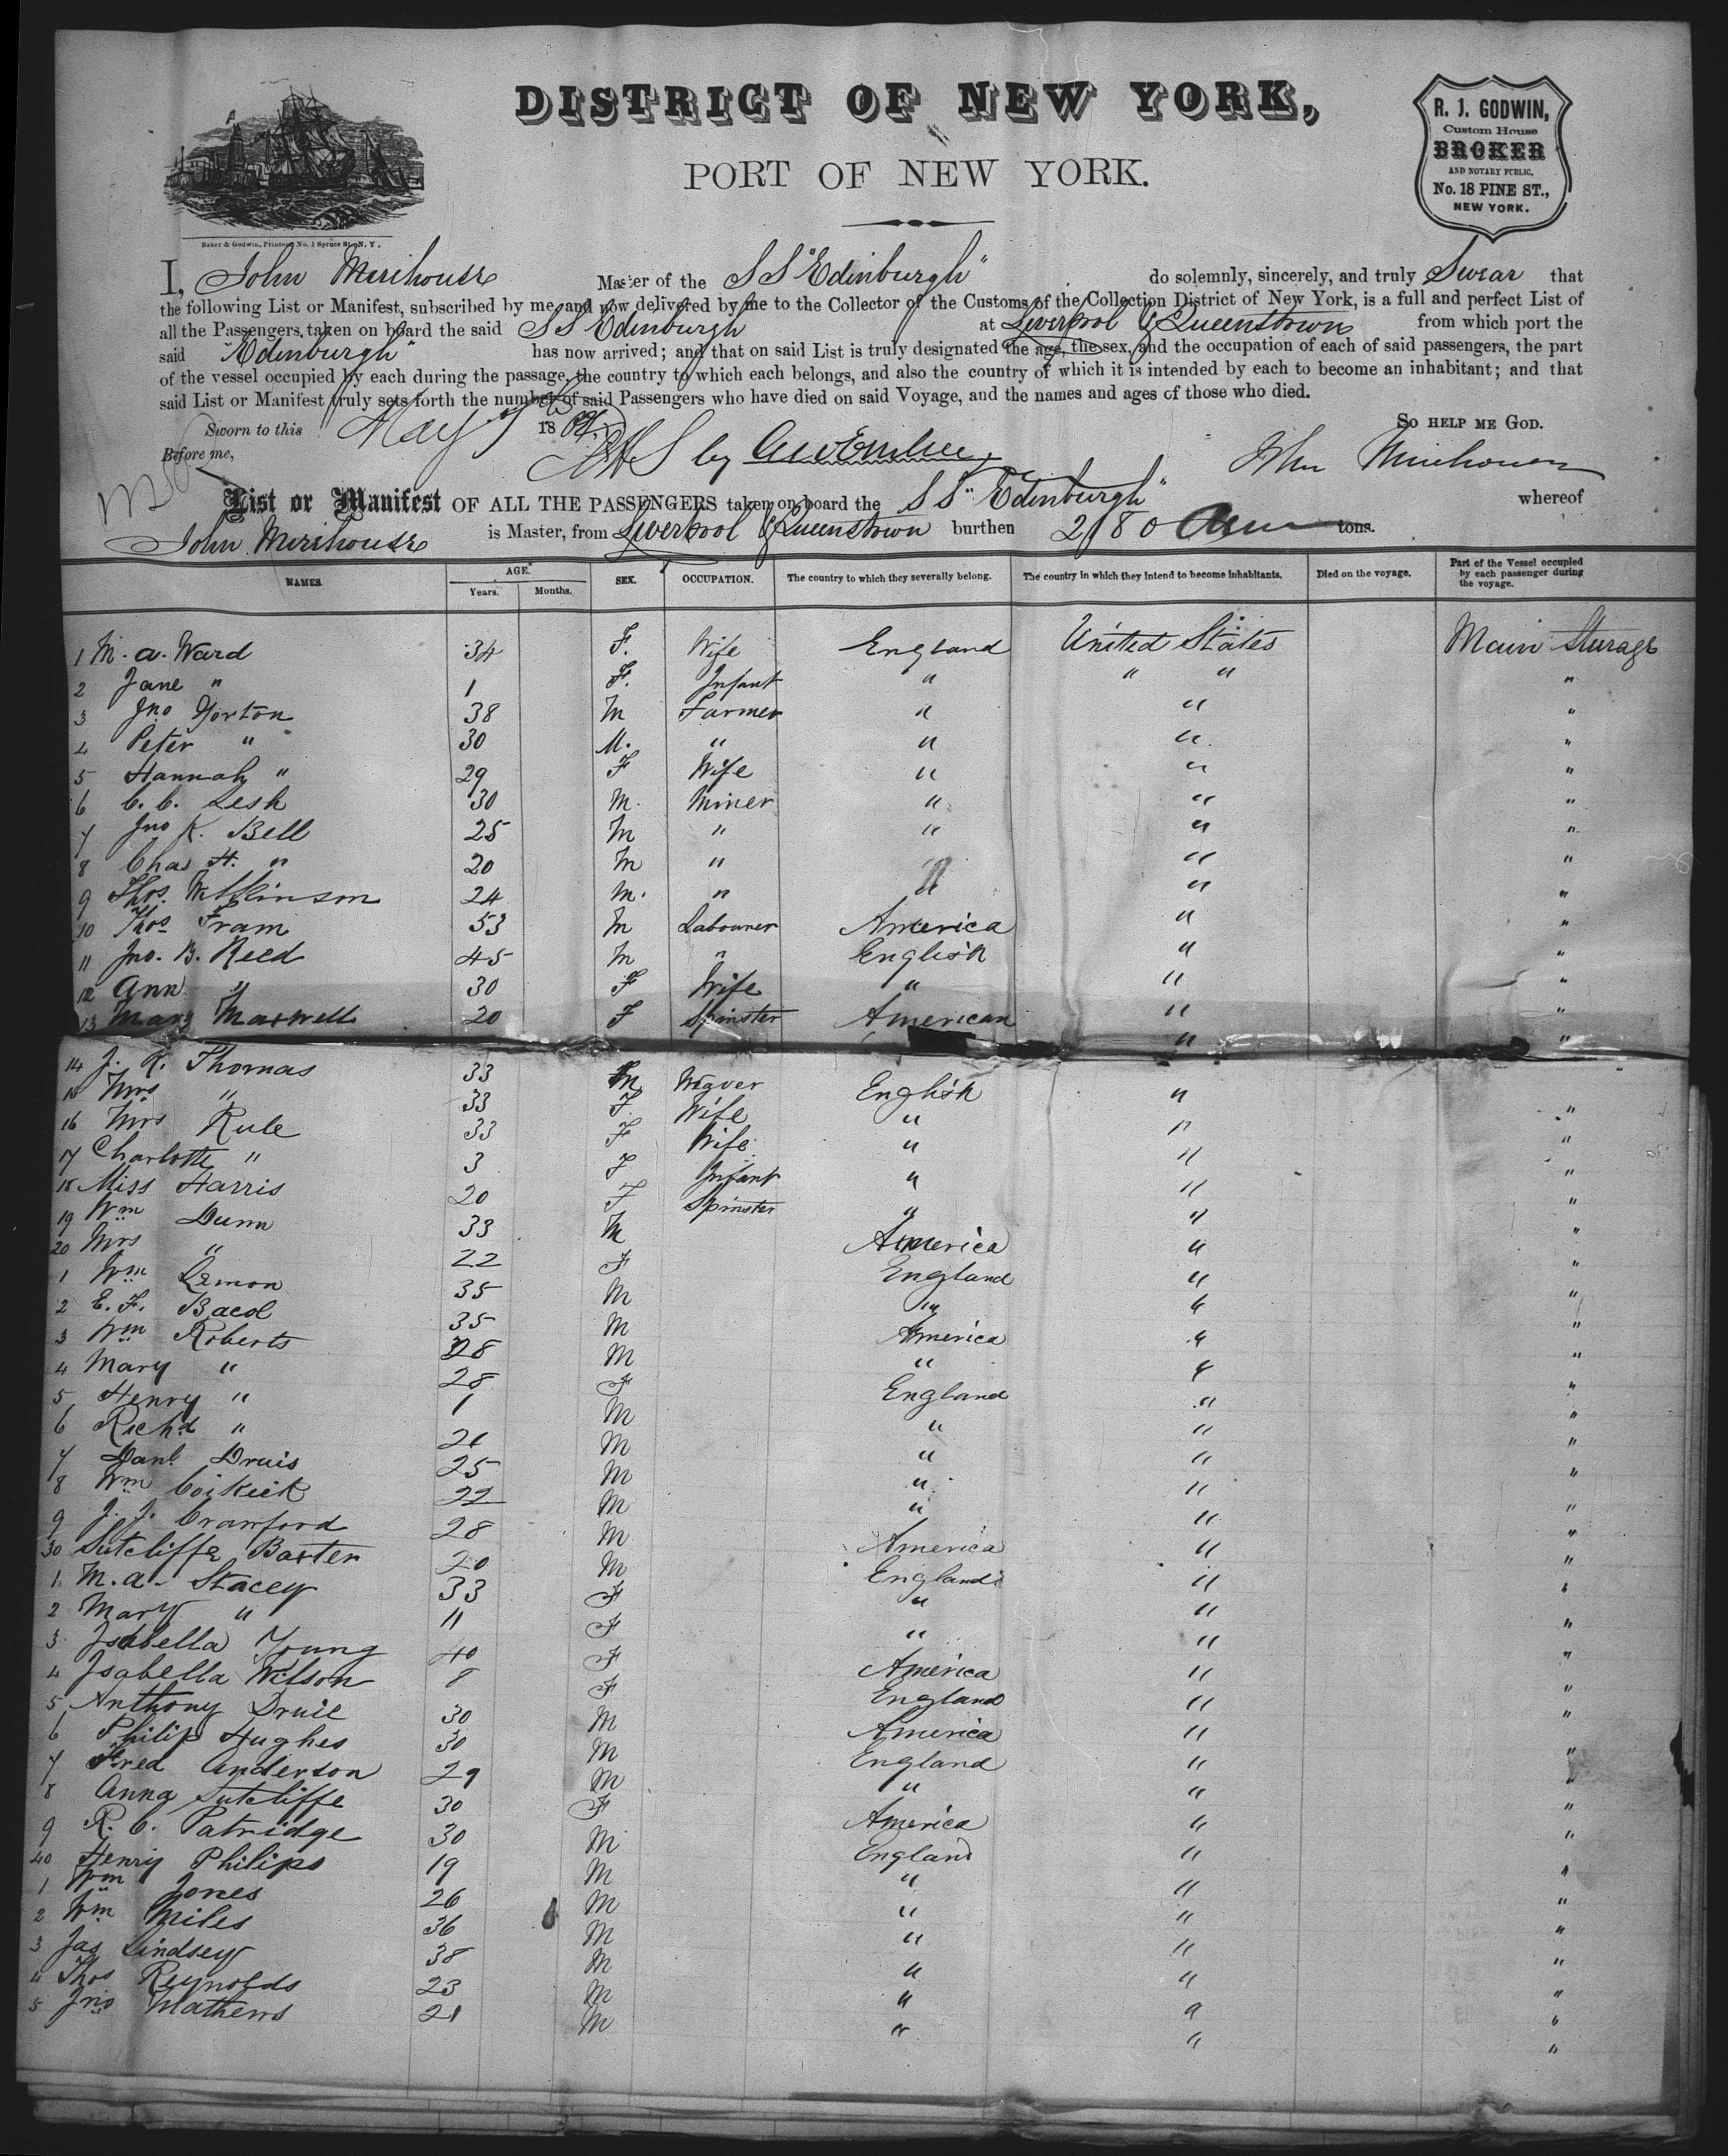 DISTRICT OF NEW YORK,
PORT OF NEW YORK.
R. J. GODWIN,
Custom House
BROKER
AND NOTARY PUBLIC,
No. 18 PINE ST.,
NEW YORK.
Baker & Godwin, Printers, No. 1 Spruce St., N. Y.
I, John Mirehouse Master of the SS "Edinburgh" do solemnly, sincerely, and truly Swear that
the following List or Manifest, subscribed by me and now delivered by me to the Collector of the Customs of the Collection District of New York, is a full and perfect List of
all the Passengers taken on board the said SS Edinburgh at Liverpool & Queenstown from which port the
said "Edinburgh" has now arrived; and that on said List is truly designated the age, the sex, and the occupation of each of said passengers, the part
of the vessel occupied by each during the passage, the country to which each belongs, and also the country of which it is intended by each to become an inhabitant; and that
said List or Manifest truly sets forth the number of said Passengers who have died on said Voyage, and the names and ages of those who died.
Sworn to this May 18 SO HELP ME GOD.
Before me, by John Mirehouse
List or Manifest OF ALL THE PASSENGERS taken on board the SS "Edinburgh" whereof
John Mirehouse is Master, from Liverpool & Queenstown burthen 2180 tons.
NAMES. AGE. Years. Months. SEX. OCCUPATION. The country to which they severally belong. The country in which they intend to become inhabitants. Died on the voyage. Part of the Vessel occupied by each passenger during the voyage.
1 M. a. Ward 34 F. Wife England United States Main Sturage
2 Jane " 1 F. Infant " " " "
3 Jno Gorton 38 M Farmer " " "
4 Peter " 30 M. " " " "
5 Hannah " 29 F Wife " " "
6 C. C. Lesh 30 M. Miner " " "
7 Jno K. Bell 25 M " " " "
8 Chas H. " 20 M " " " "
9 Thos. Wilkinson 24 M. " " " "
10 Thos Fram 53 M Labourer America " "
11 Jno. B. Reed 45 M " English " "
12 Ann " 30 F Wife " " "
13 Mary Maxwell 20 F Spinster American " "
14 J. R. Thomas 33 M Weaver English " "
15 Mrs " 33 F. Wife " " "
16 Mrs Rule 33 F Wife " " "
17 Charlotte " 3 F Infant " " "
18 Miss Harris 20 F Spinster " " "
19 Wm Dunn 33 M America " "
20 Mrs " 22 F England " "
1 Wm Lemon 35 M " " "
2 E. F. Bacol 35 M America " "
3 Wm Roberts 28 M " " "
4 Mary " 28 F England " "
5 Henry " 1 M " " "
6 Richd " 21 M " " "
7 Danl Druis 25 M " " "
8 Wm 22 M " " "
9 J. J. Crawford 28 M America " "
30 Sutcliffe Baxter 20 M England " "
1 M. a. Stacey 33 F " " "
2 Mary " 11 F " " "
3 Isabella Young 40 F America " "
4 Isabella Wilson 8 F England " "
5 Anthony Druie 30 M America " "
6 Philip Hughes 30 M England " "
7 Fred Anderson 29 M " " "
8 Anna Sutcliffe 30 F America " "
9 R. C. Patridge 30 M England " "
40 Henry Philips 19 M " " "
1 Wm Jones 26 M " " "
2 Wm Miles 36 M " " "
3 Jas Lindsey 38 M " " "
4 Thos Reynolds 23 M " " "
5 Jno Mathews 21 M " " "